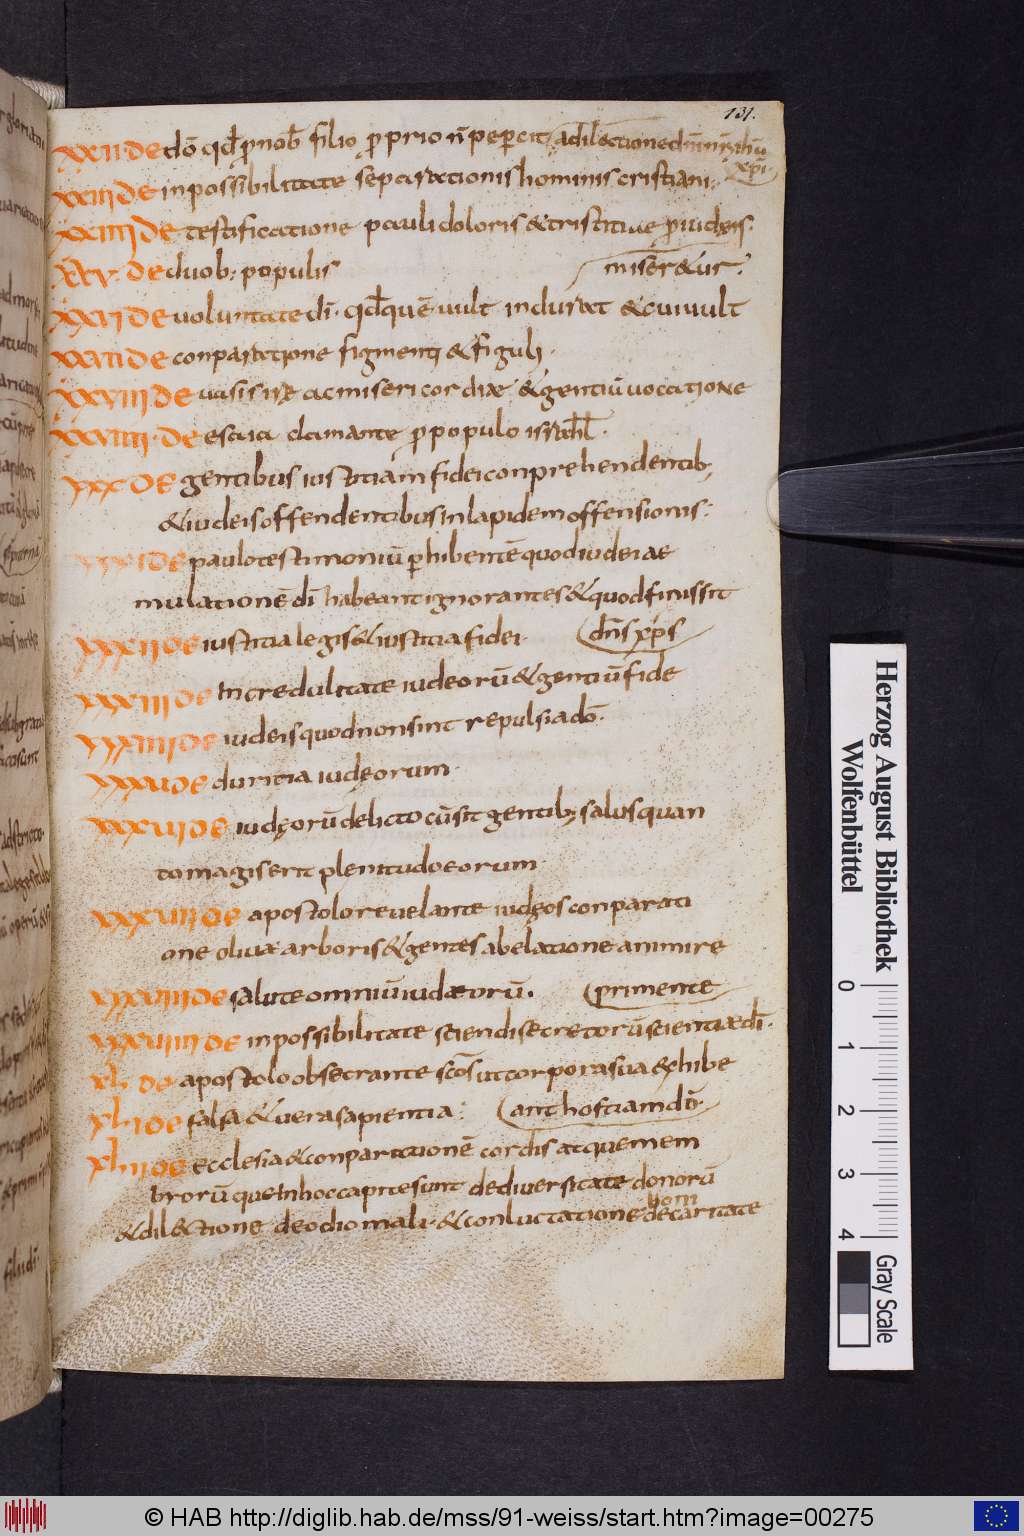 131.
XXII DE dō qđ ꝓ nob̄ filio ꝓprio n̄ peꝑcit a dilectione dn̄i nr̄i ihū
xp̄i
XXIII DE inpossibilitate separationis hominis cristiani:
XXIIII DE testificatione pauli doloris & tristitiae ꝓ iudeis.
XXV. DE duob: populis miser&ur.
XXVI DE voluntate dī. qđ quē vult indurat & cui vult
XXVII DE conparatione figmenti & figuli.
XXVIII DE vasis irę ac misericordiae & gentiū vocatione
XXVIIII. DE esaia clamante ꝓ populo israhl̄.
XXX DE gentibus iustitiam fidei conprehendentib;
& iudeis offendentibus in lapidem offensionis:
XXXI DE paulo testimoniū ꝑhibentē quod iudei ae
mulationē dī habeant ignorantes & quod finis sit
XXXII DE iustitia legis & iustitia fidei. dn̄s xp̄s
XXXIII DE incredulitate iudeorū & gentiū fide
XXXIIII DE iudeis quod non sint repulsi a dō.
XXXV DE duritia iudęorum.
XXXVI DE iudęorū delicto cū sit gentib; salus quan
to magis erit plenitudo eorum.
XXXVII DE apostolo revelante iudęos conparati
one olivae arboris & gentes ab elatione animi re
XXXVIII DE salute omniū iudaeorū. primente
XXXVIIII DE inpossibilitate sciendi secretorū scientiae dī.
XL DE apostolo obsecrante sc̄os ut corpora sua exhibe
XLI DE falsa & vera sapientia: ant hostiam dō.
XLII DE ecclesia & conparationē cordis atque mem
brorū que in hoc capite sunt de diversitate donorū
& dilectione de odio mali. & conluctatione de caritate
bom
Herzog August Bibliothek
Wolfenbüttel
0 1 2 3 4
Gray Scale
© HAB http://diglib.hab.de/mss/91-weiss/start.htm?image=00275